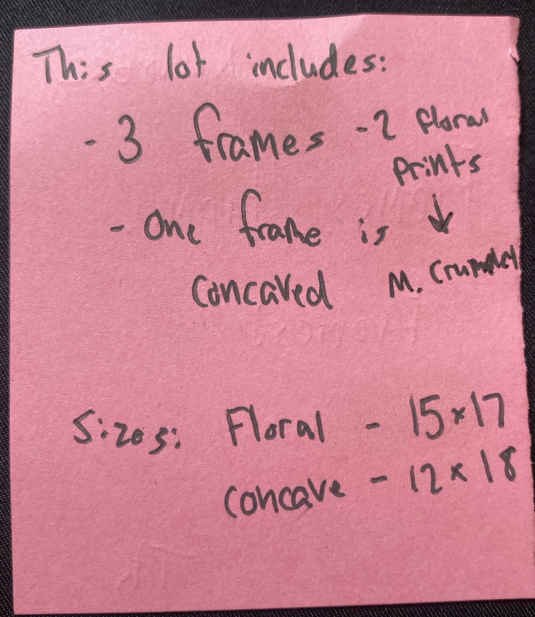 This lot includes:
- 3 frames - 2 floral
prints
↓
- One frame is
concaved M.
Sizes: Floral - 15x17
concave - 12x18